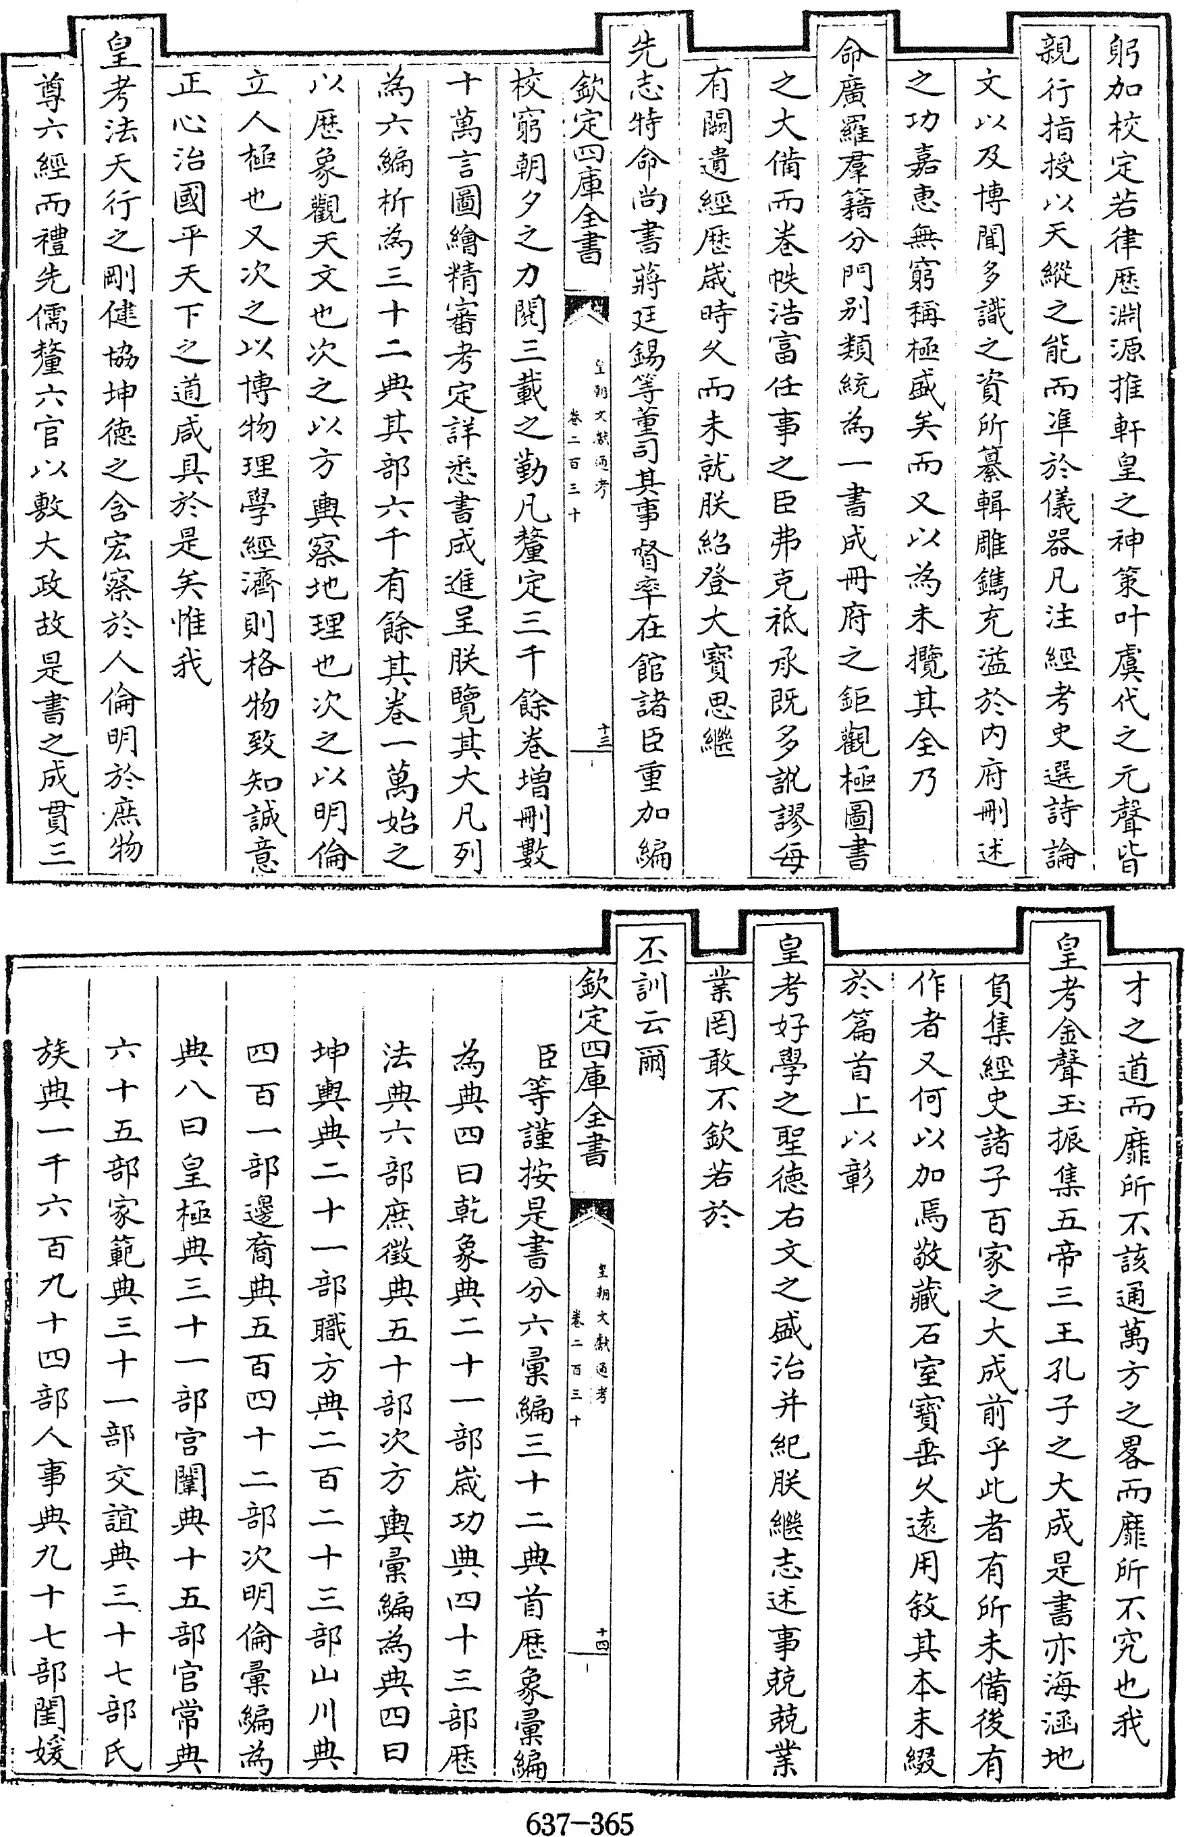 躬加校定若律歷淵源推軒皇之神策叶虞代之元聲皆
親行指授以天縱之能而準於儀器凡注經考史選詩論
文以及博聞多識之資所纂輯雕鐫充溢於內府刪述
之功嘉惠無窮稱極盛矣而又以為未攬其全乃
命廣羅羣籍分門別類統為一書成冊府之鉅觀極圖書
之大備而卷帙浩富任事之臣弗克祇承既多訛謬每
有闕遺經歷歲時久而未就朕紹登大寶思繼
先志特命尚書蔣廷錫等董司其事督率在館諸臣重加編
欽定四庫全書
皇朝文獻通考
卷二百三十
十三
校窮朝夕之力閱三載之勤凡釐定三千餘卷增刪數
十萬言圖繪精審考定詳悉書成進呈朕覽其大凡列
為六編析為三十二典其部六千有餘其卷一萬始之
以歷象觀天文也次之以方輿察地理也次之以明倫
立人極也又次之以博物理學經濟則格物致知誠意
正心治國平天下之道咸具於是矣惟我
皇考法天行之剛健協坤德之含宏察於人倫明於庶物
尊六經而禮先儒釐六官以敷大政故是書之成貫三
才之道而靡所不該通萬方之畧而靡所不究也我
皇考金聲玉振集五帝三王孔子之大成是書亦海涵地
負集經史諸子百家之大成前乎此者有所未備後有
作者又何以加焉敬藏石室寶垂久遠用敘其本末綴
於篇首上以彰
皇考好學之聖德右文之盛治并紀朕繼志述事兢兢業
業罔敢不欽若於
丕訓云爾
欽定四庫全書
皇朝文獻通考
卷二百三十
十四
臣等謹按是書分六彙編三十二典首歷象彙編
為典四曰乾象典二十一部歲功典四十三部歷
法典六部庶徵典五十部次方輿彙編為典四曰
坤輿典二十一部職方典二百二十三部山川典
四百一部邊裔典五百四十二部次明倫彙編為
典八曰皇極典三十一部宮闈典十五部官常典
六十五部家範典三十一部交誼典三十七部氏
族典一千六百九十四部人事典九十七部閨媛
637-365